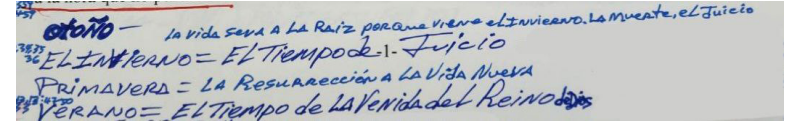 OTOÑO — la vida se va A LA RAiz porque viene el Invierno. La Muerte, el Juicio
EL INVIERNO = EL Tiempo de -1- Juicio
PRIMAVERA = LA Resurrección A LA Vida Nueva
VERANO = EL Tiempo de LA Venida del Reino de Dios